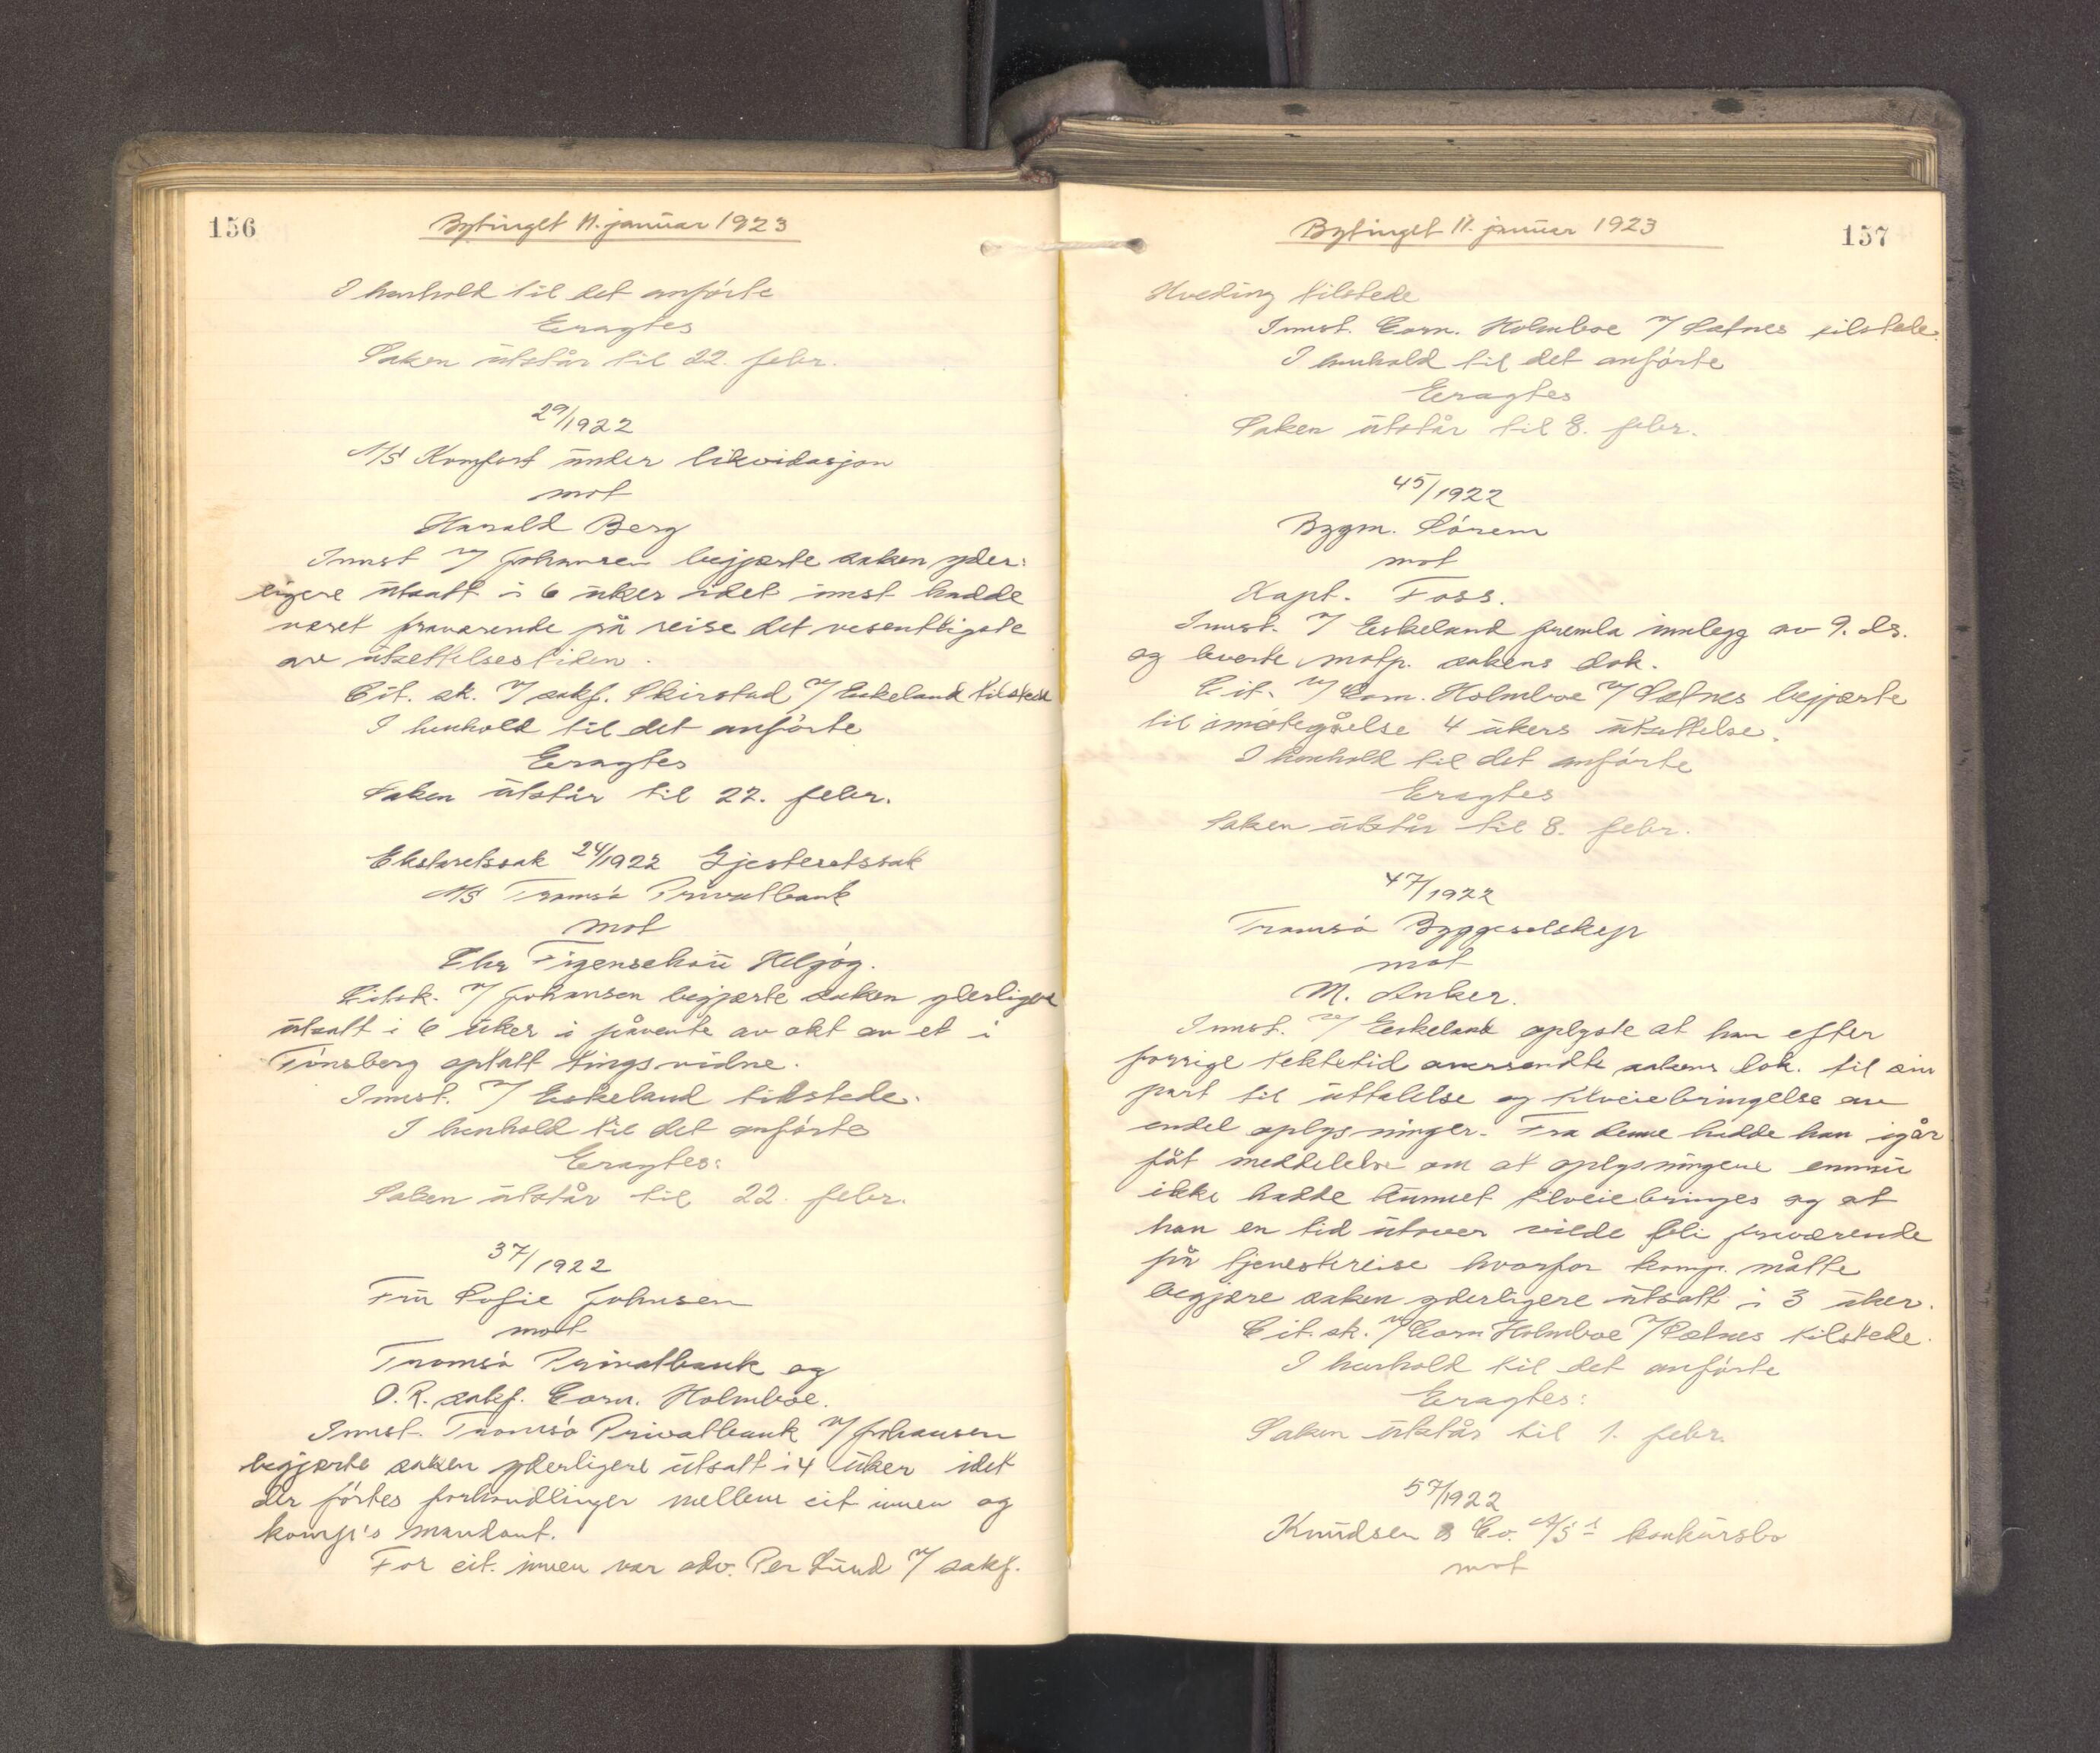 156
Bytinget 11. januar 1923
I henhold til det anførte
Eragtes
Saken utstår til 22. febr.
29/1922
A/S Komfort under likvidasjon
mot
Harald Berg
Innst v/ Johansen begjærte saken yder-
ligere utsatt i 6 uker idet innst hadde
været fraværende på reise det vesentligste
av utsettelsestiden.
Cit. sk. v/ sakf. Skirstad v/ Eskeland tilstede
I henhold til det anførte
Eragtes
Saken utstår til 22. febr.
Ekstraretssak 24/1922 Gjesteretssak
A/S Tromsø Privatbank
mot
Chr Figenschou Helgøy.
Citsk. v/ Johansen begjærte saken yderligere
utsatt i 6 uker i påvente av akt av et i
Tønsberg optatt tingsvidne.
Innst. v/ Eskeland tilstede.
I henhold til det anførte
Eragtes:
Saken utstår til 22. febr.
37/1922
Fru Sofie Johnsen
mot
Tromsø Privatbank og
O.R.sakf. Corn. Holmboe.
Innst. Tromsø Privatbank v/ Johansen
begjærte saken yderligere utsatt i 4 uker idet
der førtes forhandlinger mellem citinnen og
komp's mandant.
For citinnen var adv. Per Lund v/ sakf.
Bytinget 11. januar 1923
157
Hveding tilstede
Innst. Corn. Holmboe v/ Sætnes tilstede.
I henhold til det anførte
Eragtes
Saken utstår til 8. febr.
45/1922
Bygm. Sørem
mot
Kapt. Foss.
Innst. v/ Eskeland fremla innlegg av 9. ds.
og leverte motp. sakens dok.
Cit. v/ Corn. Holmboe v/ Sætnes begjærte
til imøtegåelse 4 ukers utsettelse.
I henhold til det anførte
Eragtes
Saken utstår til 8. febr.
47/1922
Tromsø Byggeselskap
mot
M. Anker.
Innst. v/ Eskeland oplyste at han efter
forrige tektetid oversendte sakens dok. til sin
part til uttalelse og tilveiebringelse av
endel oplysninger. Fra denne hadde han igår
fåt meddelelse om at oplysningene ennu
ikke hadde kunnet tilveiebringes og at
han en tid utover vilde bli fraværende
på tjenestereise hvorfor komp. måtte
begjære saken yderligere utsatt i 3 uker.
Cit. sk. v/ Corn Holmboe v/ Sætnes tilstede.
I henhold til det anførte
Eragtes:
Saken utstår til 1. febr.
57/1922
Knudsen & Co. A/S's konkursbo
mot